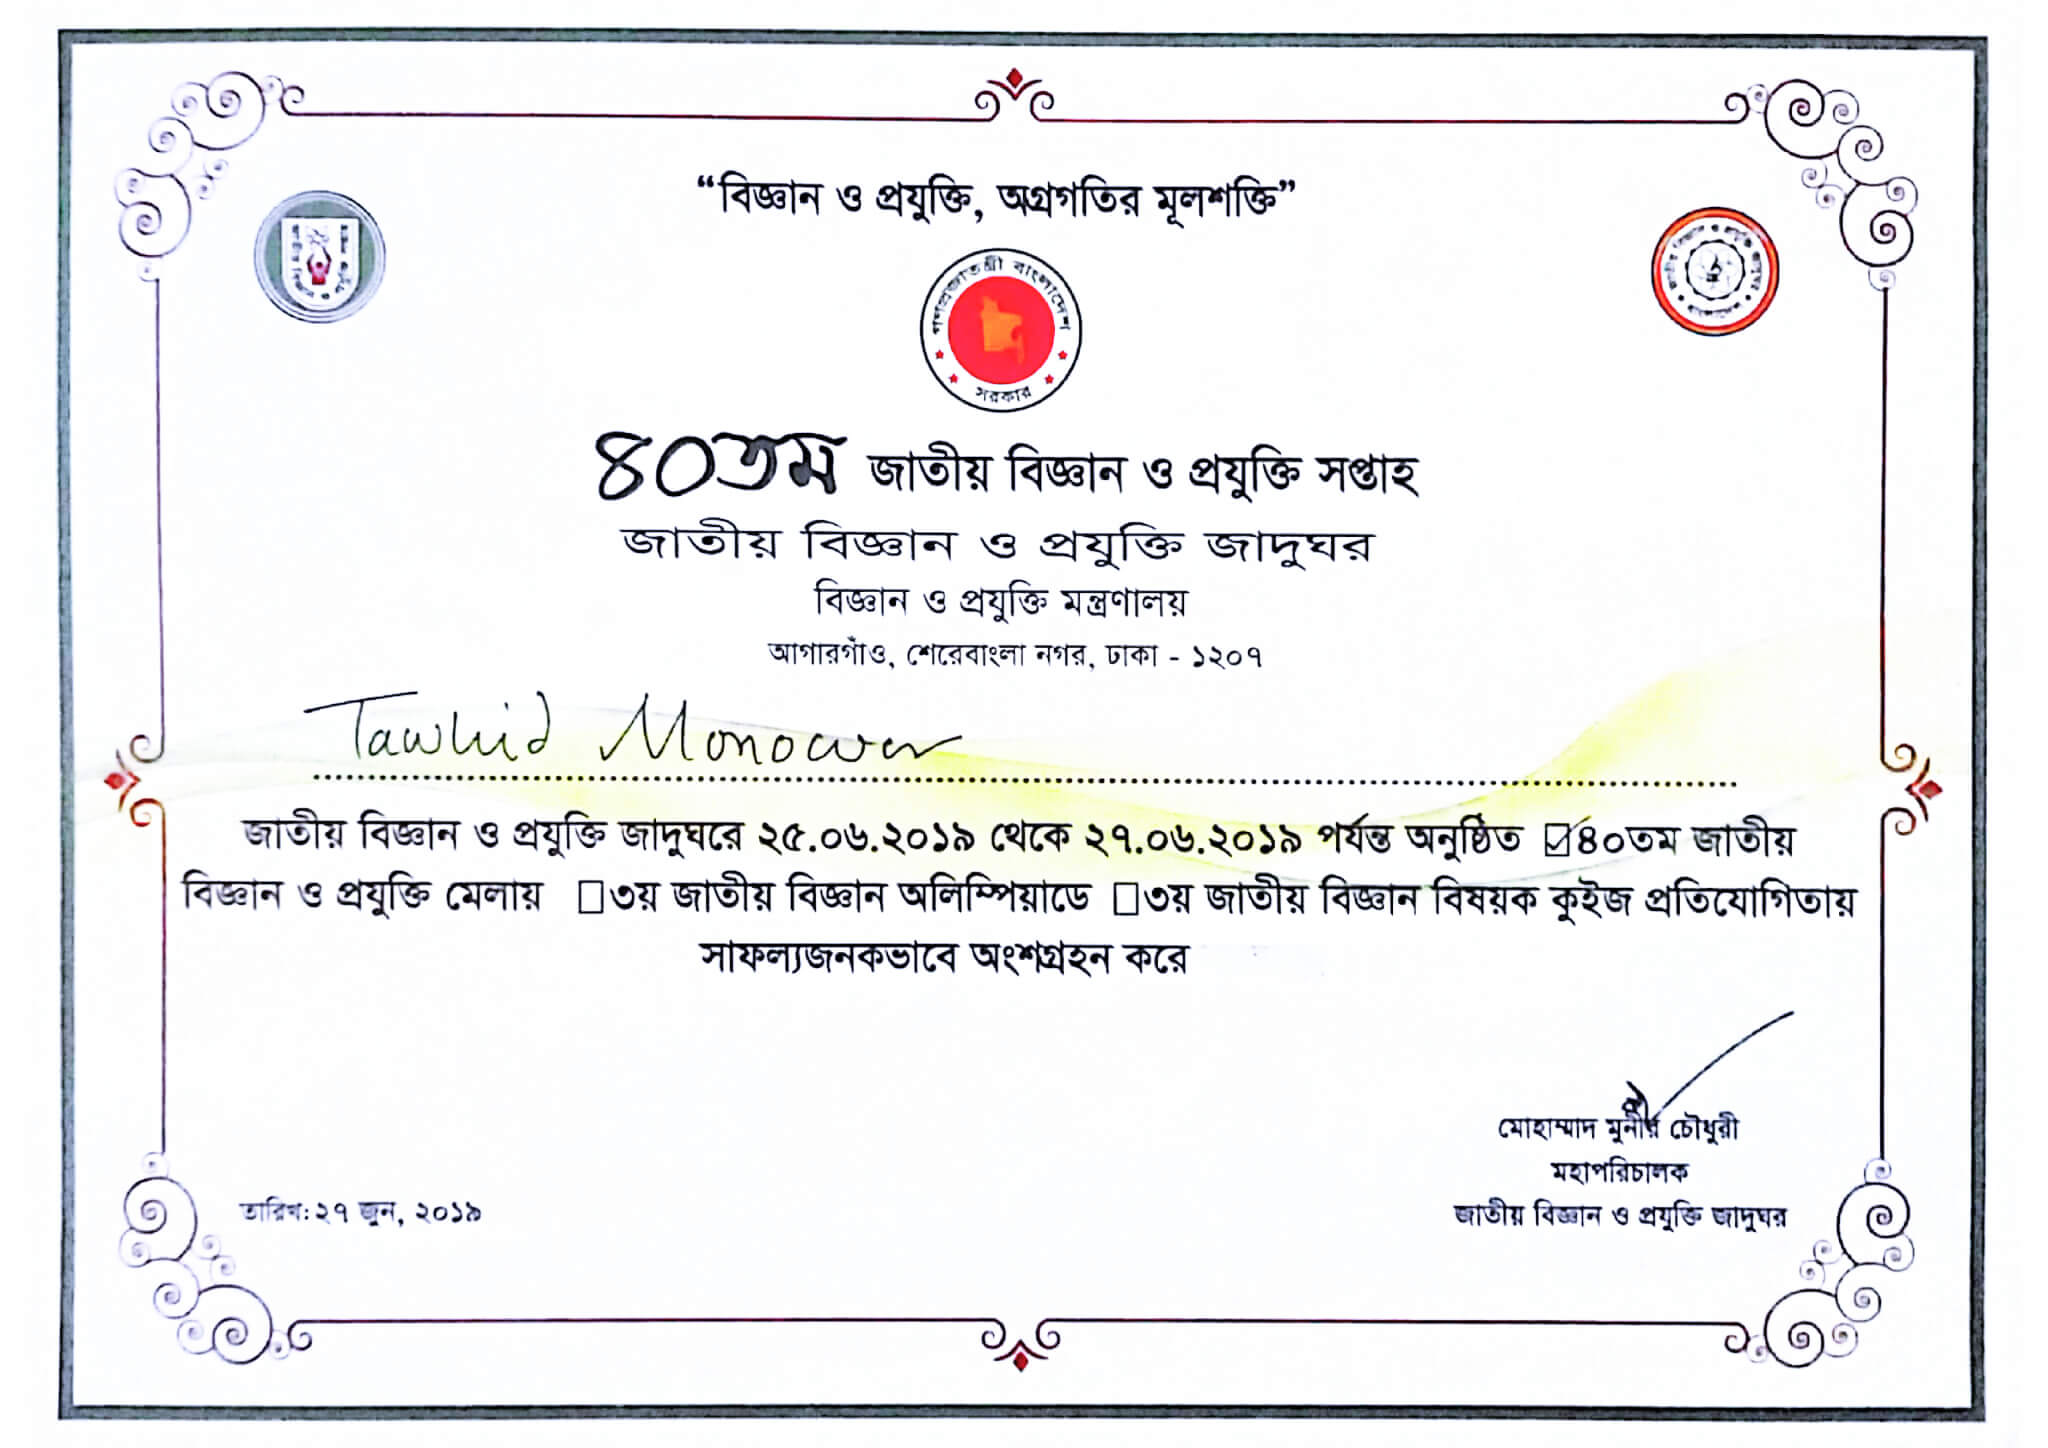 “বিজ্ঞান ও প্রযুক্তি, অগ্রগতির মূলশক্তি”
গণপ্রজাতন্ত্রী বাংলাদেশ
সরকার
৪০তম জাতীয় বিজ্ঞান ও প্রযুক্তি সপ্তাহ
জাতীয় বিজ্ঞান ও প্রযুক্তি জাদুঘর
বিজ্ঞান ও প্রযুক্তি মন্ত্রণালয়
আগারগাঁও, শেরেবাংলা নগর, ঢাকা - ১২০৭
Tawhid Monowar
জাতীয় বিজ্ঞান ও প্রযুক্তি জাদুঘরে ২৫.০৬.২০১৯ থেকে ২৭.০৬.২০১৯ পর্যন্ত অনুষ্ঠিত ☑৪০তম জাতীয়
বিজ্ঞান ও প্রযুক্তি মেলায় □৩য় জাতীয় বিজ্ঞান অলিম্পিয়াডে □৩য় জাতীয় বিজ্ঞান বিষয়ক কুইজ প্রতিযোগিতায়
সাফল্যজনকভাবে অংশগ্রহন করে
মোহাম্মাদ মুনীর চৌধুরী
মহাপরিচালক
জাতীয় বিজ্ঞান ও প্রযুক্তি জাদুঘর
তারিখ:২৭ জুন, ২০১৯